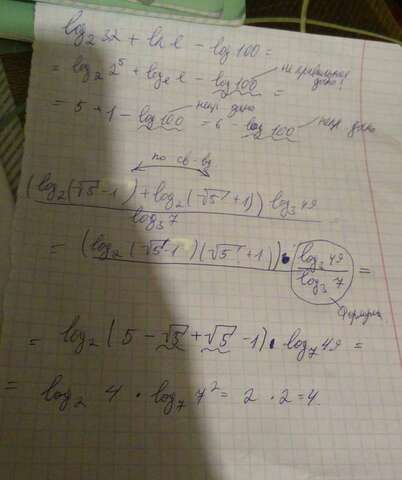 log₂ 32 + ln e - log 100 =
= log₂ 2⁵ + logₑ e - log 100 = не правильно дано!
= 5 + 1 - log 100 = 6 - log 100 непр. дано непр. дано
по св-ву
(log₂(√5 - 1) + log₂(√5 + 1)) log₃ 49
log₃ 7
= (log₂ (√5 - 1)(√5 + 1)) • log₃ 49 / log₃ 7 =
формула
= log₂ (5 - √5 + √5 - 1) • log₇ 49 =
= log₂ 4 · log₇ 7² = 2 · 2 = 4.